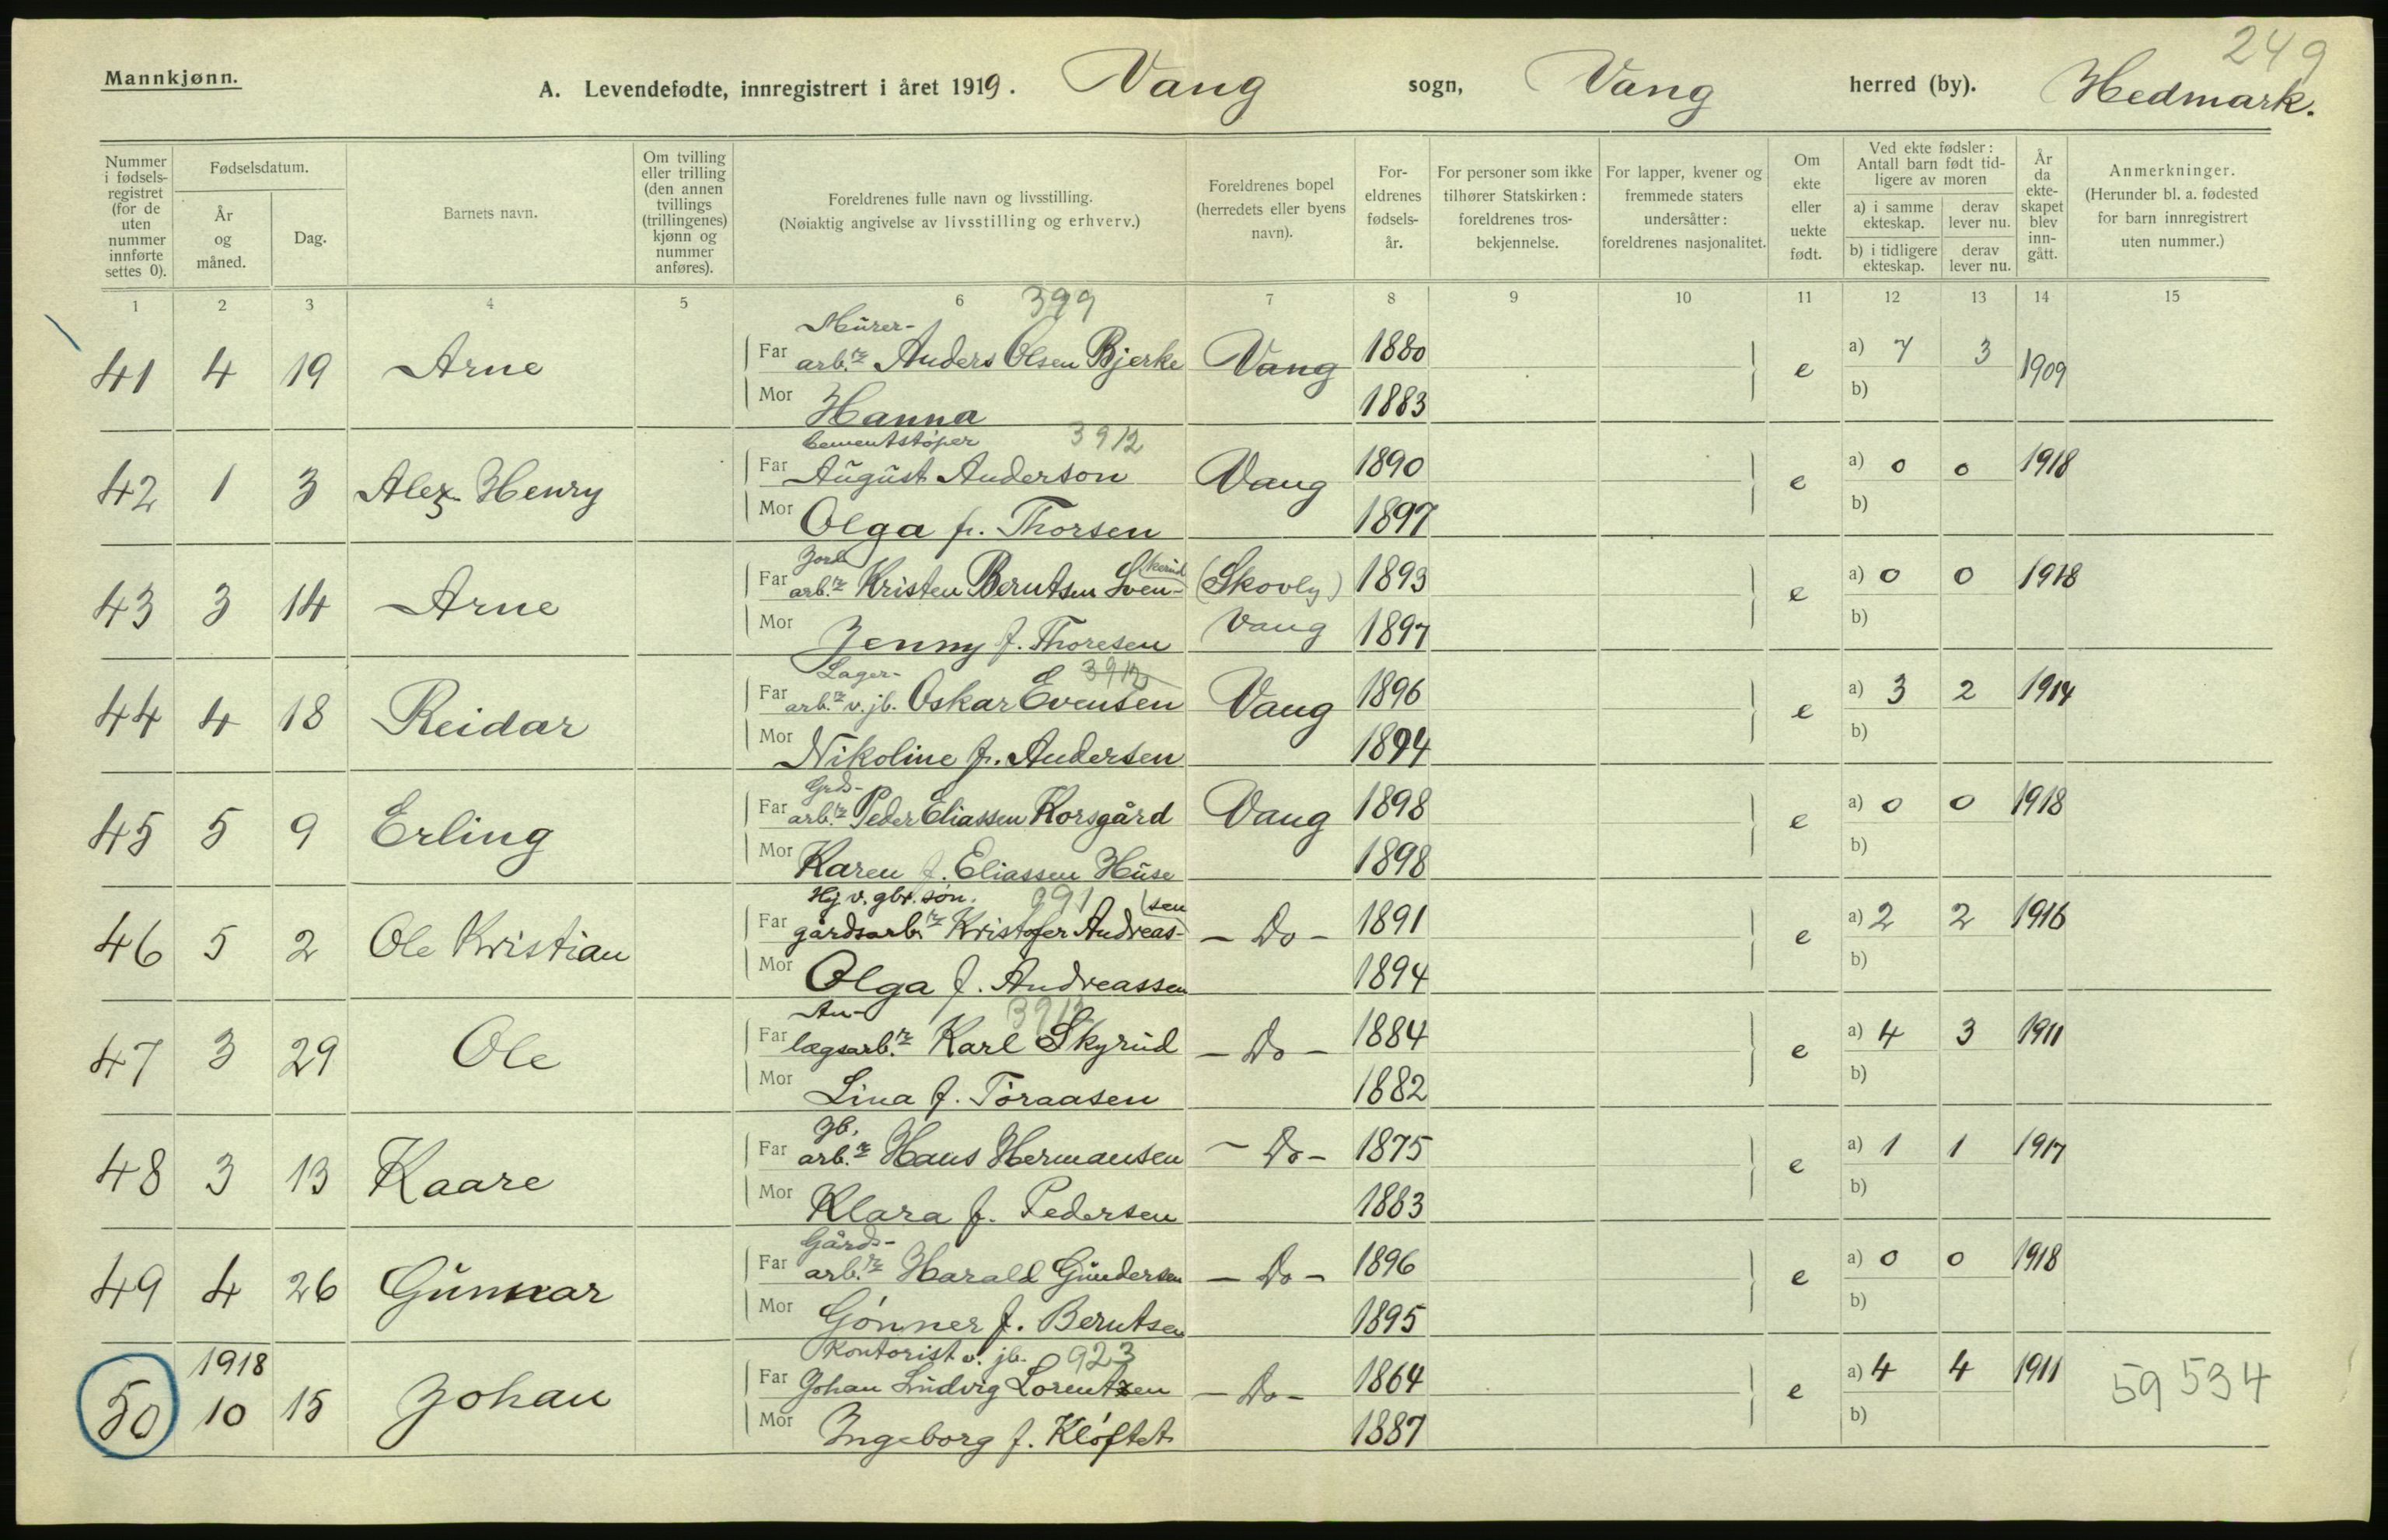 249
Mannkjønn.
A. Levendefødte, innregistrert i året 1919. Vang sogn, Vang herred (by). Hedmark.
Nummer i fødsels-registret (for de uten nummer innførte settes 0).
Fødselsdatum.
År og måned.
Dag.
Barnets navn.
Om tvilling eller trilling (den annen tvillings (trillingenes) kjønn og nummer anføres).
Foreldrenes fulle navn og livsstilling.
(Nøiaktig angivelse av livsstilling og erhverv.)
Foreldrenes bopel (herredets eller byens navn).
For-eldrenes fødsels-år.
For personer som ikke tilhører Statskirken: foreldrenes tros-bekjennelse.
For lapper, kvener og fremmede staters undersåtter: foreldrenes nasjonalitet.
Om ekte eller uekte født.
Ved ekte fødsler: Antall barn født tid-ligere av moren
a) i samme ekteskap.
derav lever nu.
b) i tidligere ekteskap.
derav lever nu.
År da ekte-skapet blev inn-gått.
Anmerkninger.
(Herunder bl. a. fødested for barn innregistrert uten nummer.)
1 2 3 4 5 6 7 8 9 10 11 12 13 14 15
399
Mürer-
41 4 19 Arne Far arb.r Anders Olsen Bjerke Vang 1880 e a) 7 3 1909
Mor Hanna 1883 b)
Cementstøper 3912
42 1 3 Alex Henry Far Aügüst Anderson Vang 1890 e a) 0 0 1918
Mor Olga f. Thorsen 1897 b)
Jord skerüd
43 3 14 Arne Far arb.r Kristen Berntsen Sven- (Skovly) 1893 e a) 0 0 1918
Mor Jenny f. Thoresen Vang 1897 b)
Lager- 3912
44 4 18 Reidar Far arb.r v. jb. Oskar Evensen Vang 1896 e a) 3 2 1914
Mor Nikoline f. Andersen 1894 b)
Grds-
45 5 9 Erling Far arb.r Peder Eliassen Korsgård Vang 1898 e a) 0 0 1918
Mor Karen f. Eliassen Hüse 1898 b)
Hj. v. gbr. søn. 991 sen
46 5 2 Ole Kristian Far gårdsarb.r Kristofer Andreas- - Do - 1891 e a) 2 2 1916
Mor Olga f. Andreassen 1894 b)
An- 3912
47 3 29 Ole Far lægsarb.r Karl Skyrüd - Do - 1884 e a) 4 3 1911
Mor Lina f. Toraasen 1882 b)
Jb.
48 3 13 Kaare Far arb.r Hans Hermansen - Do - 1875 e a) 1 1 1917
Mor Klara f. Pedersen 1883 b)
Gårds-
49 4 26 Günnar Far arb.r Harald Gündersen - Do - 1896 e a) 0 0 1918
Mor Gønner f. Berntsen 1895 b)
1918 Kontorist v. jb. 923
50 10 15 Johan Far Johan Lüdvig Lorentzen - Do - 1864 e a) 4 4 1911 59 534
Mor Ingeborg f. Kløftet 1887 b)